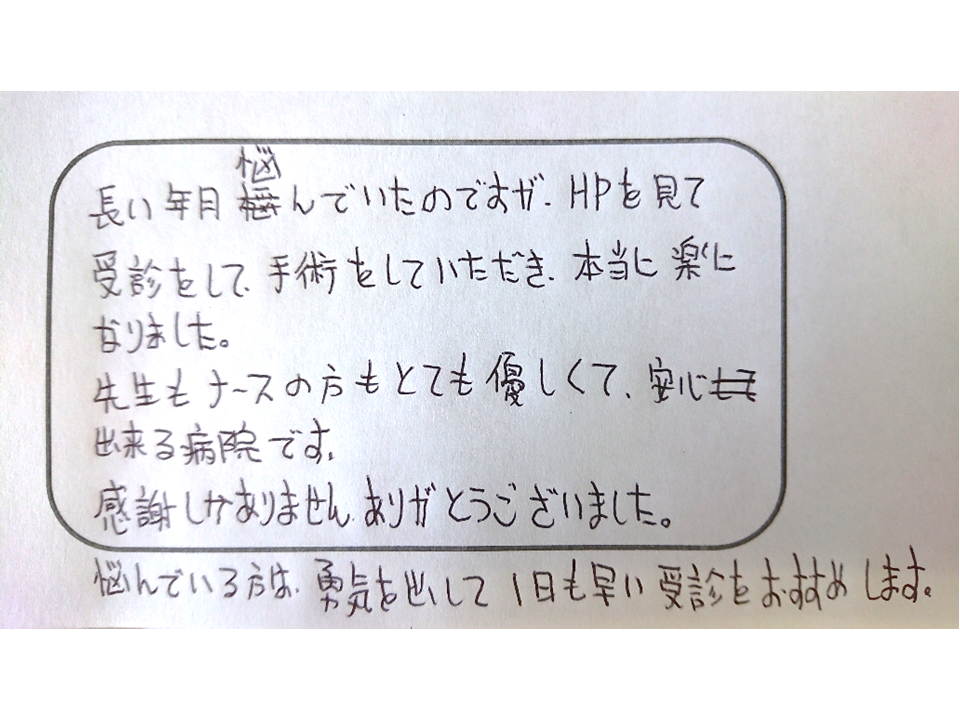 長い年月悩んでいたのですが、HPを見て
受診をして、手術をしていただき、本当に楽に
なりました。
先生もナースの方もとても優しくて、安心
出来る病院です。
感謝しかありません。ありがとうございました。
悩んでいる方は、勇気を出して1日も早い受診をおすすめします。